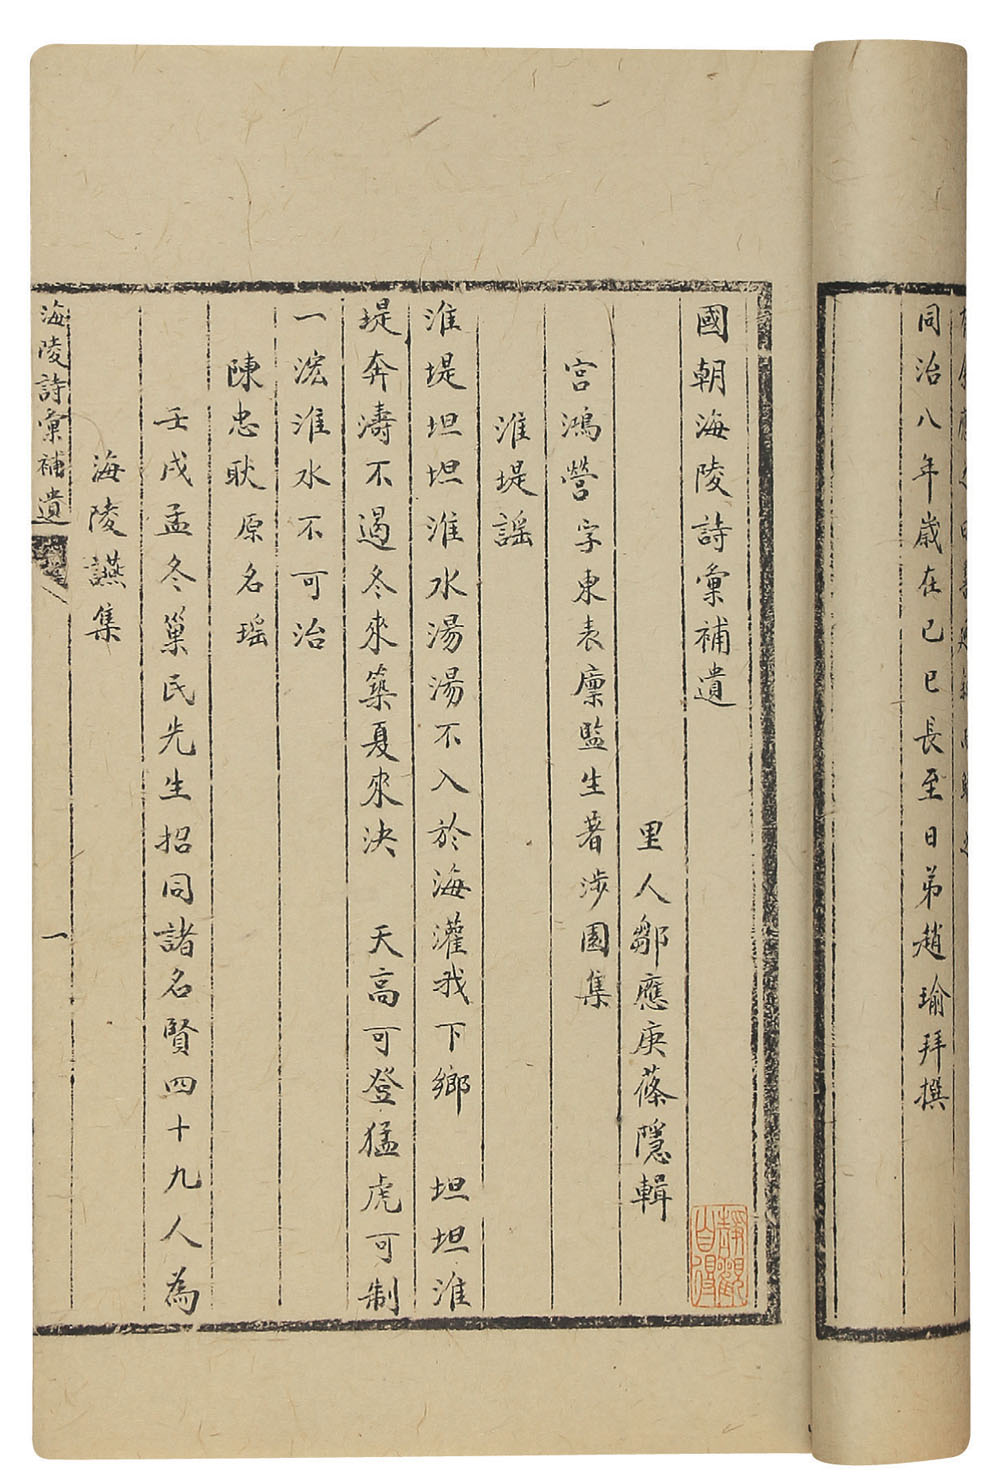 同治八年歲在己巳長至日弟趙瑜拜撰
國朝海陵詩彙補遺
里人鄒應庚蓧隱輯
宮鴻營字東表廩監生著涉園集
淮堤謠
淮堤坦坦淮水湯湯不入於海灌我下鄉　坦坦淮
堤奔濤不遏冬來築夏來決　天高可登猛虎可制
一濙淮水不可治
陳忠耿原名瑤
壬戌孟冬巢民先生招同諸名賢四十九人為
海陵讌集
海陵詩彙補遺
一
靜觀自得